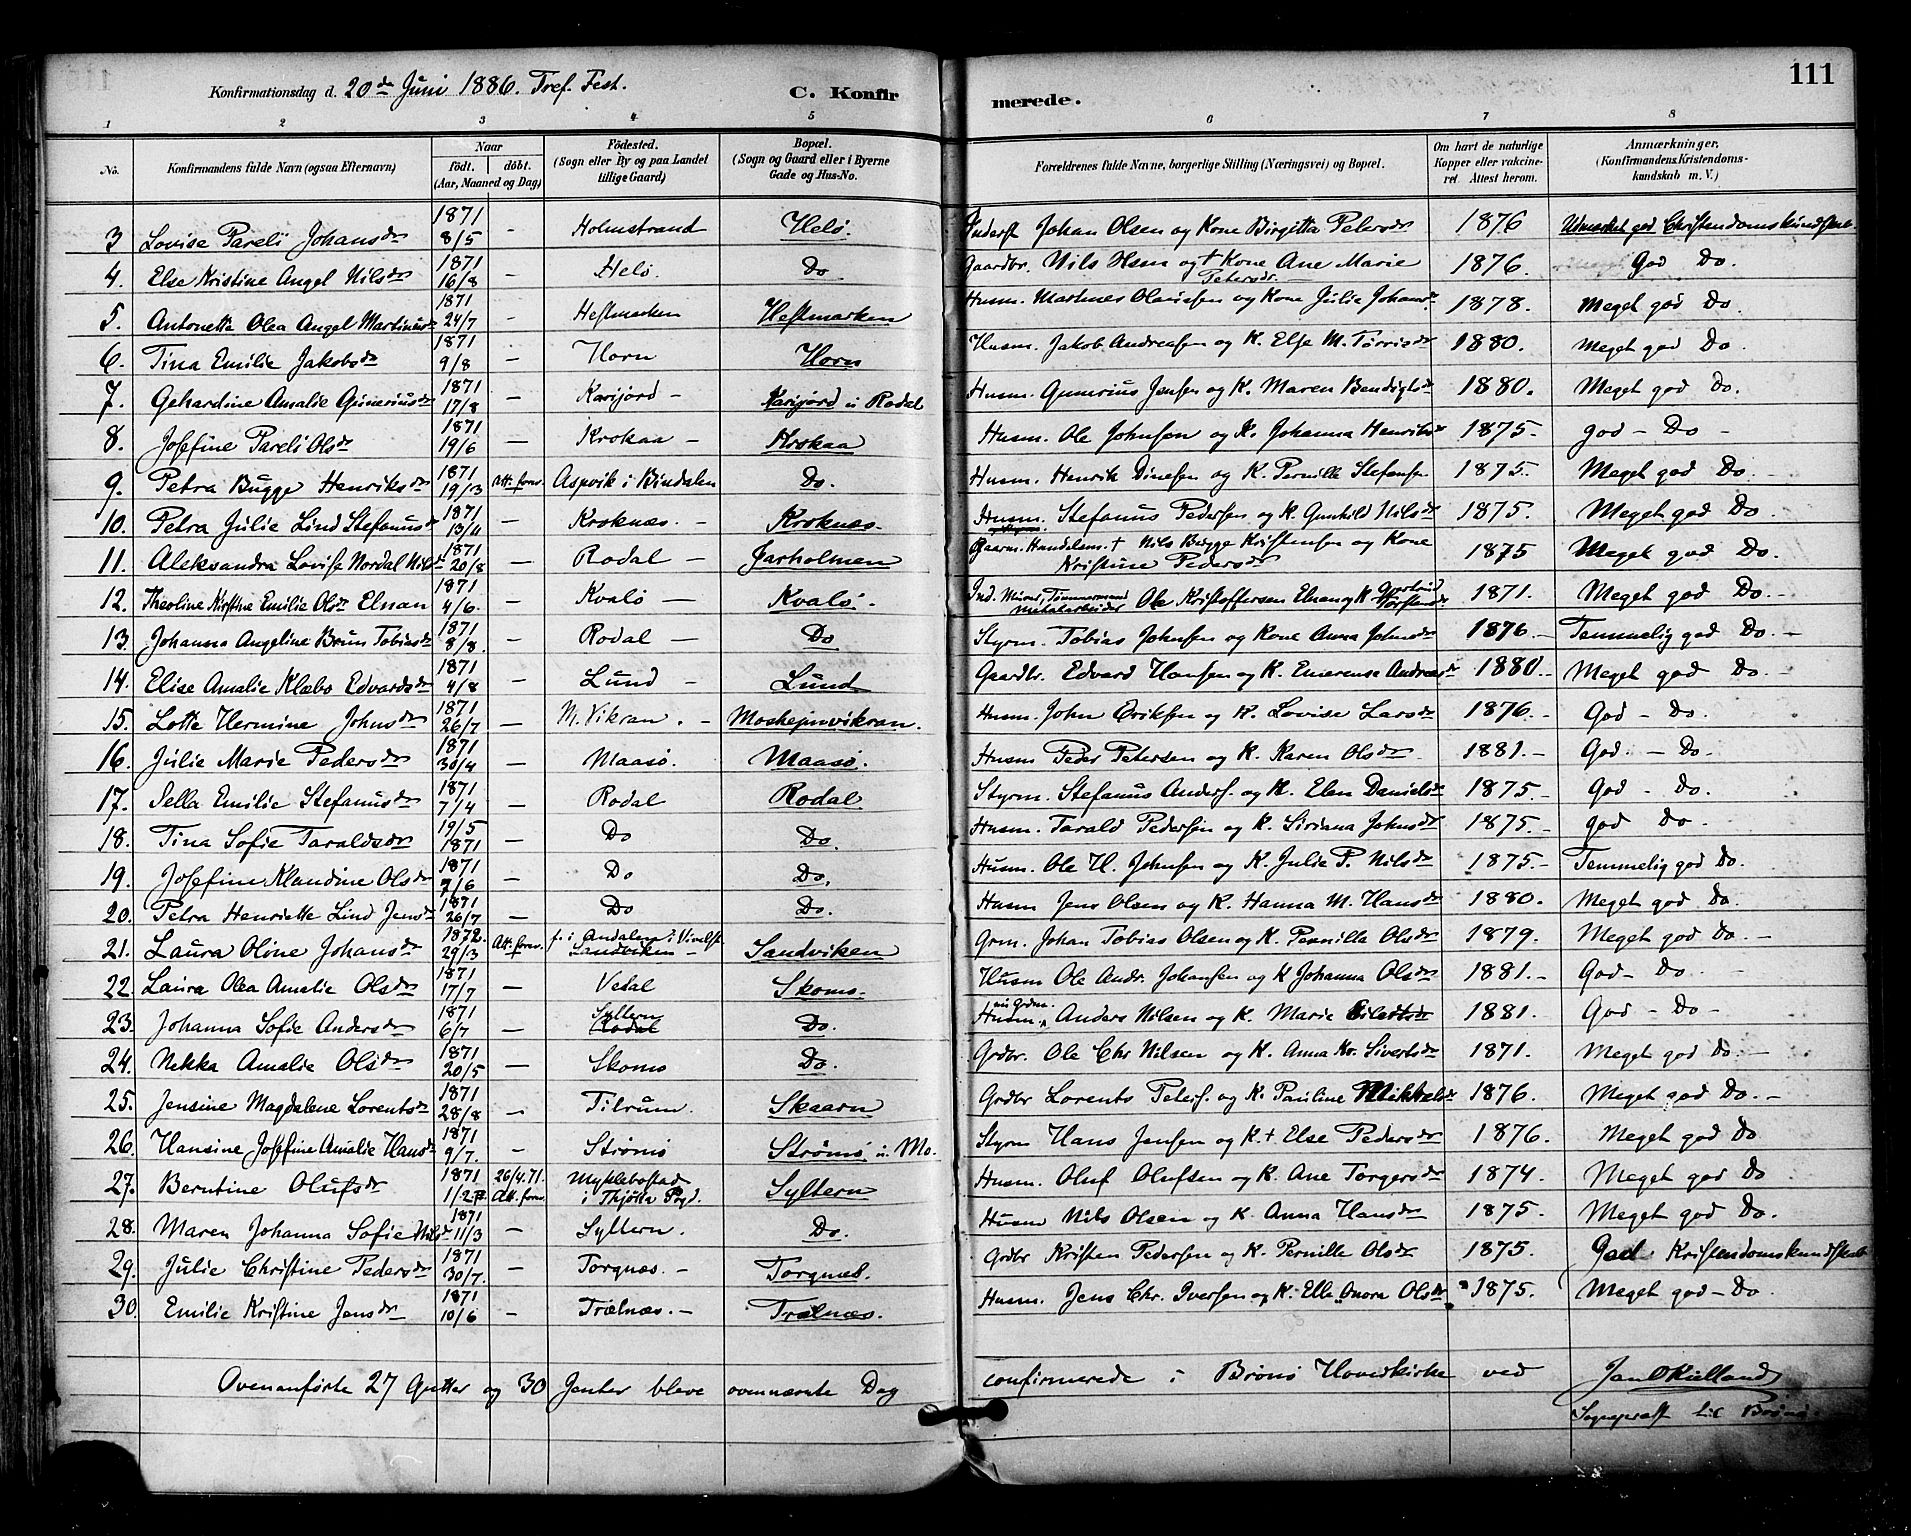 Konfirmationsdag d. 20de Juni 1886. Tref. Fest. C. Konfirmerede. 111
1 2 3 4 5 6 7 8
No. Konfirmandens fulde Navn (ogsaa Efternavn) Naar født. døbt. (Aar, Maaned og Dag) Fødested. (Sogn eller By og paa Landet tillige Gaard) Bopæl. (Sogn og Gaard eller i Byerne Gade og Hus-No. Forældrenes fulde Navne, borgerlige Stilling (Næringsvei) og Bopæl. Om havt de naturlige Kopper eller vaccineret. Attest herom. Anmærkninger. (Konfirmandens Kristendomskundskab m. V.)
3 Lovise Pareli Johansdr 1871 8/5 - Holmstrand Helø. Inderst Johan Olsen og Kone Birgitta Petersdr 1876 Udmærket god Christendomskundskab
4. Else Kristine Angel Nilsdr 1871 16/8 - Helø. Do Gaardbr. Nils Hem og + Kone Ane Marie Petersdr. 1876. God Do.
5. Antonette Olea Angel Martinusdr 1871 24/7 - Hestmarken Hestmarken Husm. Martines Olaissen og Kone Julie Johansdr 1878. Meget god Do.
6. Tina Emilie Jakobsdr 1871 9/8 - Horn Horn Husm. Jakob Andreasen og K. Else M. Torrisdr 1880. Meget god Do.
7. Gehardine Amalie Guneriusdr 1871 17/8 - Karijord - Karijord u Rodal Husm. Gunerius Jensen og K. Maren Bendigtsdr 1880. Meget god Do.
8. Josefine Pareli Olsdr 1871 19/6 - Krokaa - Krokaa Husm. Ole Johnsen og K. Johanna Henriksdr 1875. god - Do -
9. Petra Bugge Henriksdr 1871 19/3 Att. forev. Aspvik i Bindalen Do. Husm. Henrik Dinesen og K. Pernille Stefansen 1875. Meget god Do.
10. Petra Julie Lind Stefanusdr 1871 13/4 - Kroknæs. - Kroknæs. Husm. Stefanus Pedersen og K. Gunhild Nilsdr 1875 Meget god Do
11. Aleksandra Lovise Nordal Nilsdr 1871 20/8 - Rodal - Jarholmen Gaarm. Handelsm. + Nils Bugge Kristensen og Kone Kristine Pedersdr 1875 Meget god Do.
12. Theoline Kirstine Emilie Olsdr Elnan 1871 4/6. - Kvalø - Kvalø. Ind. Timmermand Metalarbeider Ole Kristoffersen Elnan og K. 1871. Meget god Do.
13. Johanna Angeline Brun Tobiasdr 1871 8/8. - Rodal - Do Styrm. Tobias Johnsen og Kone Anna Johnsdr 1876- Temmelig god Do. -
14. Elise Amalie Klæbo Edvardsdr 1871 4/8 - Lund - Lund Gaardbr. Edvard Hansen og K. Emerense Andreasdr 1880.- Meget god Do. -
15. Lotte Hermine Johnsdr 1871 26/7 - M. Vikran. - Mosheimvikran. Husm. John Eriksen og K. Lovise Larsdr 1876.- God - Do.
16. Julie Marie Pedersdr 1871 30/4 - Maasø. Maasø. Husm Peder Petersen og K. Karen Olsdr 1881.- God. - Do -
17. Sella Emilie Stefanusdr 1871 7/4 - Rodal Rodal Styrm. Stefanus Anders. og K. Elen Danielsdr 1875.- God - Do.
18. Tina Sofie Taraldsdr 19/5 1871 - Do Do. Husm. Tarald Pedersen og K. Siriana Johnsdr 1875.- god Do.
19. Josefine Klaudine Olsdr 1871 7/6 - Do Do. Husm. Ole H. Johnsen og K. Julie P. Nilsdr 1875- Temmelig god Do.
20. Petra Henriette Lind Jensdr 1871 26/7 - Do Do. Husm Jens Olsen og K. Hanna M. Hansdr 1880. Meget god Do.
21. Laura Oline Johansdr 1872. 29/3 Att. forev. f. i Andalen i Vivelst. Sandviken - Sandviken Grm. Johan Tobias Olsen og K. Pernilla Olsdr 1879. Meget god Do. -
22. Laura Olea Amalie Olsdr 1871 17/7 - Vedal Skoms. Husm Ole Andr. Johansen og K Johanna Olsdr 1881.- God - Do. -
23. Johanna Sofie Andersdr 1871 6/7 - Syltern Rodal Do. Husm. nu Grdm. Anders Nilsen og K. Marie Eilertsdr 1881. God - Do -
24. Nekka Amalie Olsdr 1871 20/5 - Skoms Do. Grdbr. Ole Chr Nilsen og K. Anna Kr. Sivertsdr 1871. Meget god Do. -
25. Jensine Magdalene Lorentsdr 1871 28/8 - Tilrum. Skaarn Grdbr Lorents Peters. og K. Pauline Mikkelsdr 1876. Meget god Do. -
26. Hansine Josefine Amalie Hansdr 1871 9/7. - Strømø Strømø u. Mo. Styrm Hans Jensen og K + Else Pedersdr 1876. Meget god Do
27. Berntine Olufsdr 1871 1/2 26/4.71 Att. forev. Myklebostad i Thjøtta Prgd. Syltern Husm. Oluf Olufsen og K. Ane Torgersdr 1874 Meget god Do
28. Maren Johanna Sofie Nilsdr 1871 11/3 - Syltern. Do. Husm Nils Olsen og K Anna Hansdr 1875. Meget god Do.
29. Julie Christine Pedersdr 1871 30/7. - Torgnæs. - Torgnæs. Grdbr Kristen Pedersen og K. Pernille Olsdr 1875. God Kristendomskundskab
30. Emilie Kristine Jensdr 1871 10/6 - Trælnæs. - Trælnæs. Husm. Jens Chr. Iversen og K. Elle Anora Olsdr 1875. Meget god - Do
Ovenanførte 27 Gutter og 30 Jenter bleve ovennævnte Dag confirmerede i Brønø Hovedkirke ved Jan O Kielland
Sognepræst til Brønø.